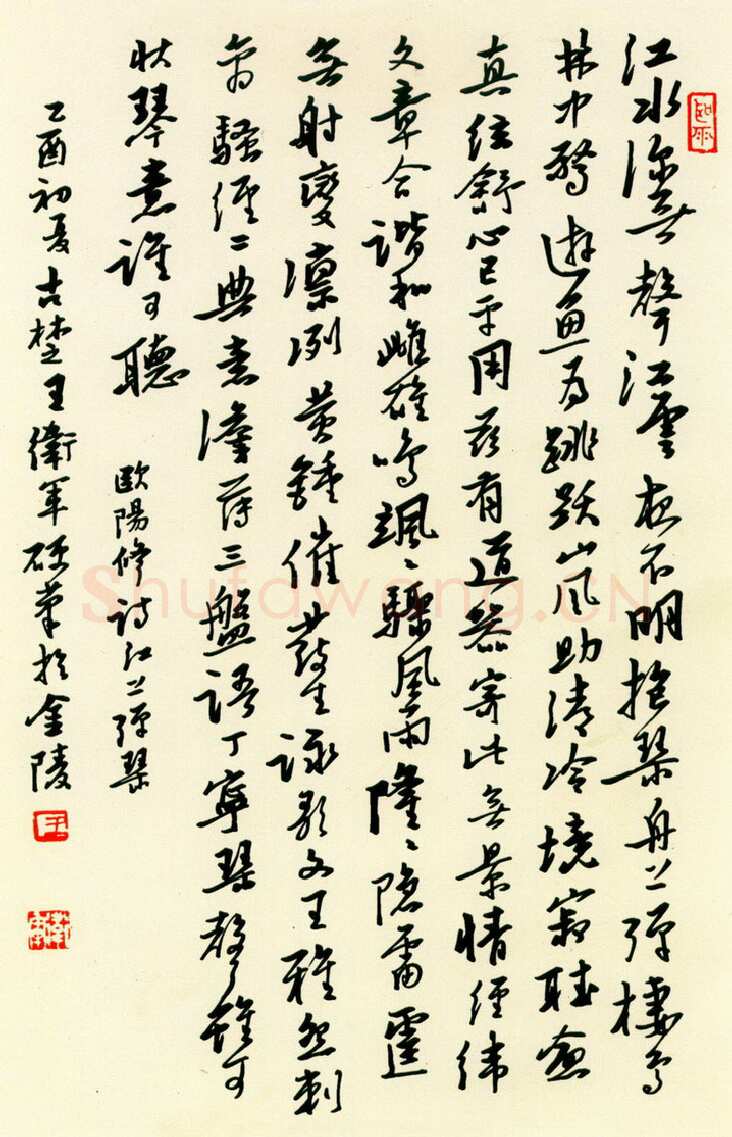 江水深無聲江雲夜不明抱琴舟上彈棲鳥
林中驚遊魚为跳跃山風助清冷境寂聴愈
真弦舒心已平用茲有道器寄此無景情經緯
文章合諧和雌雄鳴颯〻驟風雨隆〻隐雷霆
無射變凛冽黄鍾催發生詠歌文王雅怨刺
离騷經二典意澹薄三盤語丁寧琴聲雖可
状琴意誰可聽
歐陽修詩江上弹琴
乙酉初夏古楚王衛軍 於金陵
王
Shufawang.CN